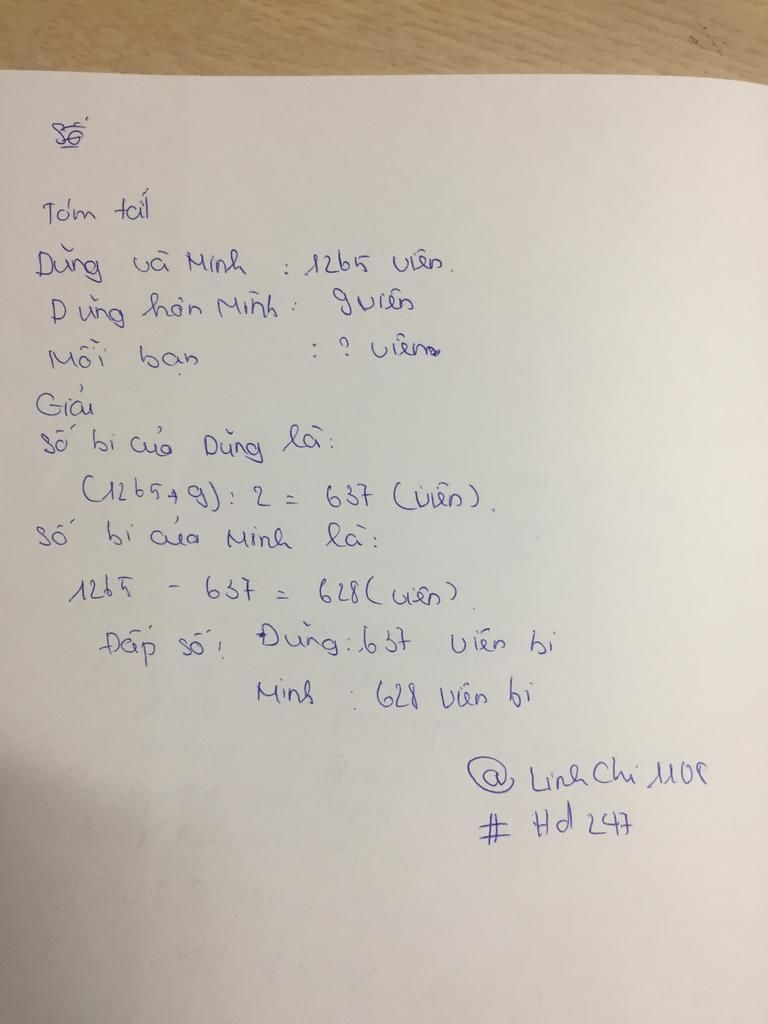 Tóm tắt
Dũng và Minh : 1265 viên.
Dũng hơn Minh : 9 viên
Mỗi bạn : ? viên
Giải
Số bi của Dũng là:
(1265 + 9) : 2 = 637 (viên).
Số bi của Minh là:
1265 - 637 = 628 (viên)
Đáp số: Dũng: 637 viên bi
Minh : 628 viên bi
@ LinhChi
# Hd 247